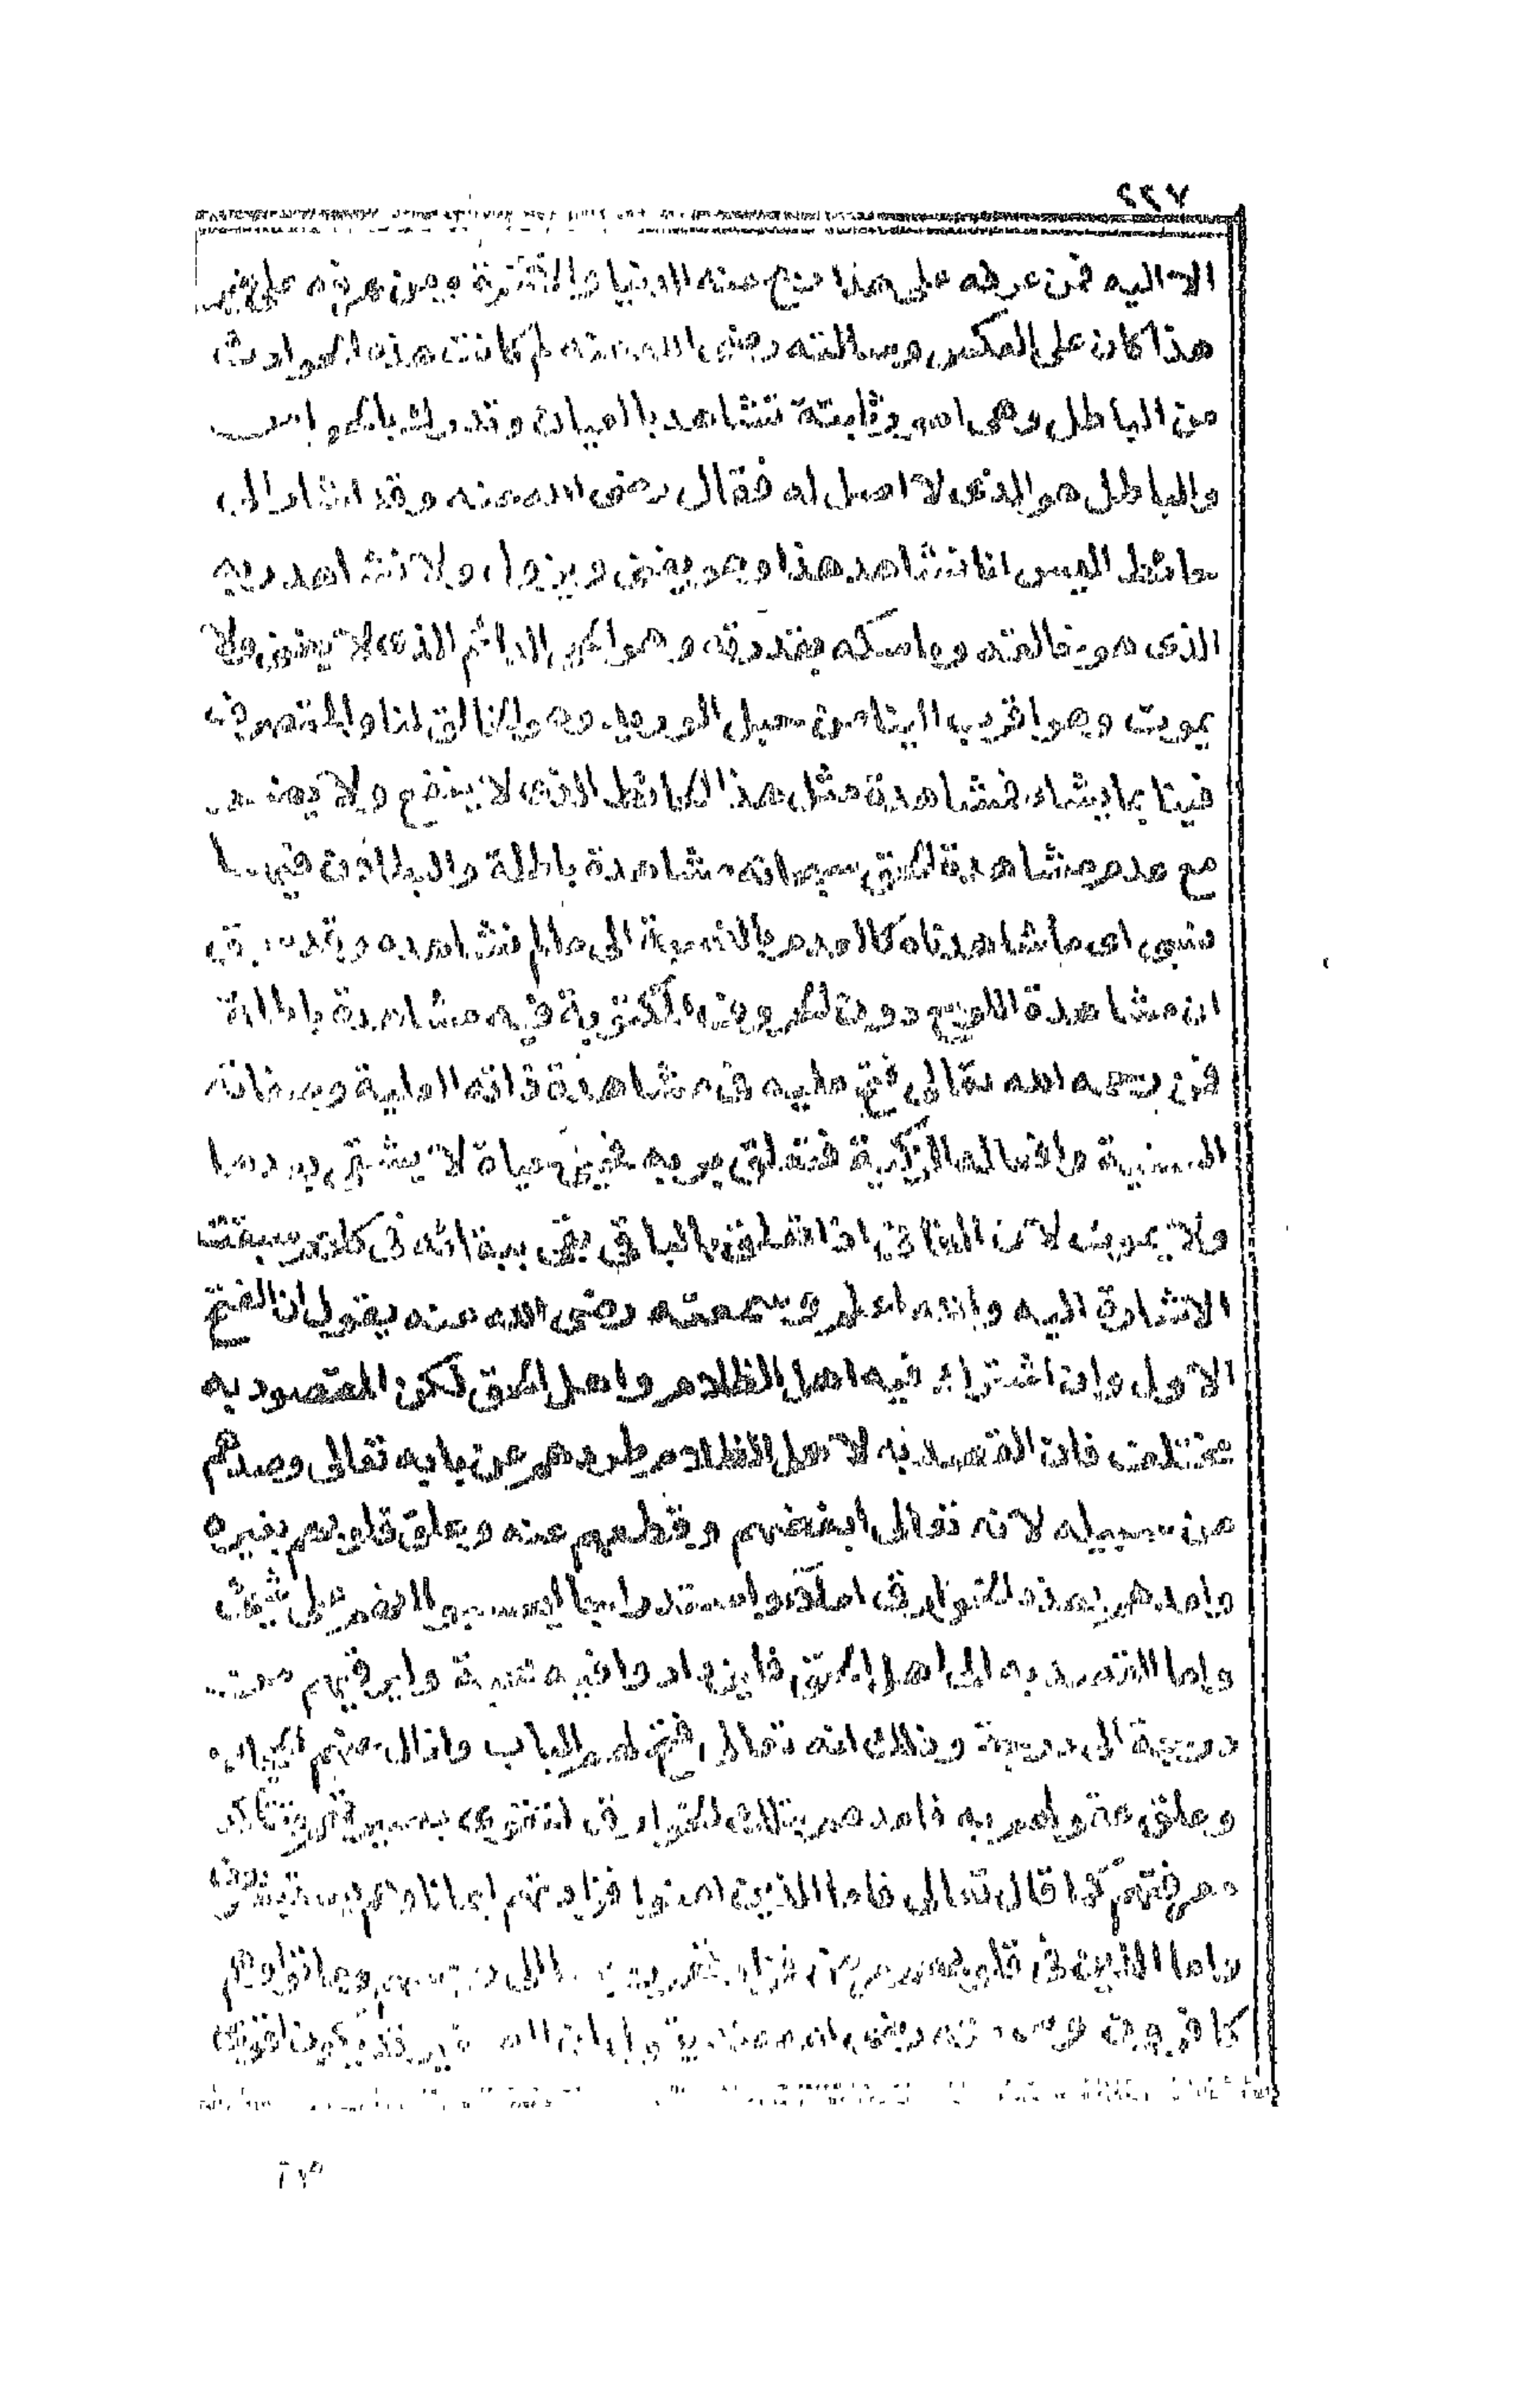 ٢٢٧
الا اليه فمن عرفه على هذا ربح منه الدنيا والاخرة ومن عرفه على غير
هذا كان على العكس وسالته رضي الله عنه لم كانت هذه الحوادث
من الباطل وهي امور ثابتة تشاهد بالعيان وتدرك بالحواس
والباطل هو الذي لا اصل له فقال رضي الله عنه وقد اشار الى
حائط اليس انا نشاهد هذا وهو يفنى ويزول ولا نشاهد ربه
الذي هو خالقه وماسكه بقدرته وهو الحي الدائم الذي لا يفنى ولا
يموت وهو اقرب الينا من حبل الوريد وهو الخالق لنا والمتصرف
فينا بما يشاء فمشاهدة مثل هذا الحائط الذي لا ينفع ولا يضر
مع عدم مشاهدة الحق سبحانه مشاهدة باطلة والبطلان فيها
نسبي اي ما شاهدناه كالعدم بالنسبة الى ما لم نشاهده وقد سبق
ان مشاهدة اللوح دون الحروف المكتوبة فيه مشاهدة باطلة
فمن رحمه الله تعالى فتح عليه في مشاهدة ذاته العلية وصفاته
السنية وافعاله الزكية فتعلق بربه فحيي حياة لا يشقى بعدها
ولا يموت لان الفاني اذا تعلق بالباقي بقي ببقائه في كلام سبقت
الاشارة اليه والله اعلم وسمعته رضي الله عنه يقول ان الفتح
الاول وان اشترك فيه اهل الظلام واهل الحق لكن المقصود به
مختلف فان القصد به لاهل الظلام طردهم عن بابه تعالى وصدهم
عن سبيله لانه تعالى ابغضهم وقطعهم عنه وعلق قلوبهم بغيره
وامدهم بهذه الخوارق املاء واستدراجا ليحسبوا انهم على شيء
واما القصد به الى اهل الحق فليزدادوا فيه محبة وليرقيهم من
درجة الى درجة وذلك انه تعالى فتح لهم الباب وازال عنهم الحجاب
وعلق عقولهم به فامدهم بتلك الخوارق لتقوى بصيرتهم وتتأكد
معرفتهم كما قال تعالى فاما الذين امنوا فزادتهم ايمانا وهم يستبشرون
واما الذين في قلوبهم مرض فزادتهم رجسا الى رجسهم وماتوا وهم
كافرون وسمعته رضي الله عنه